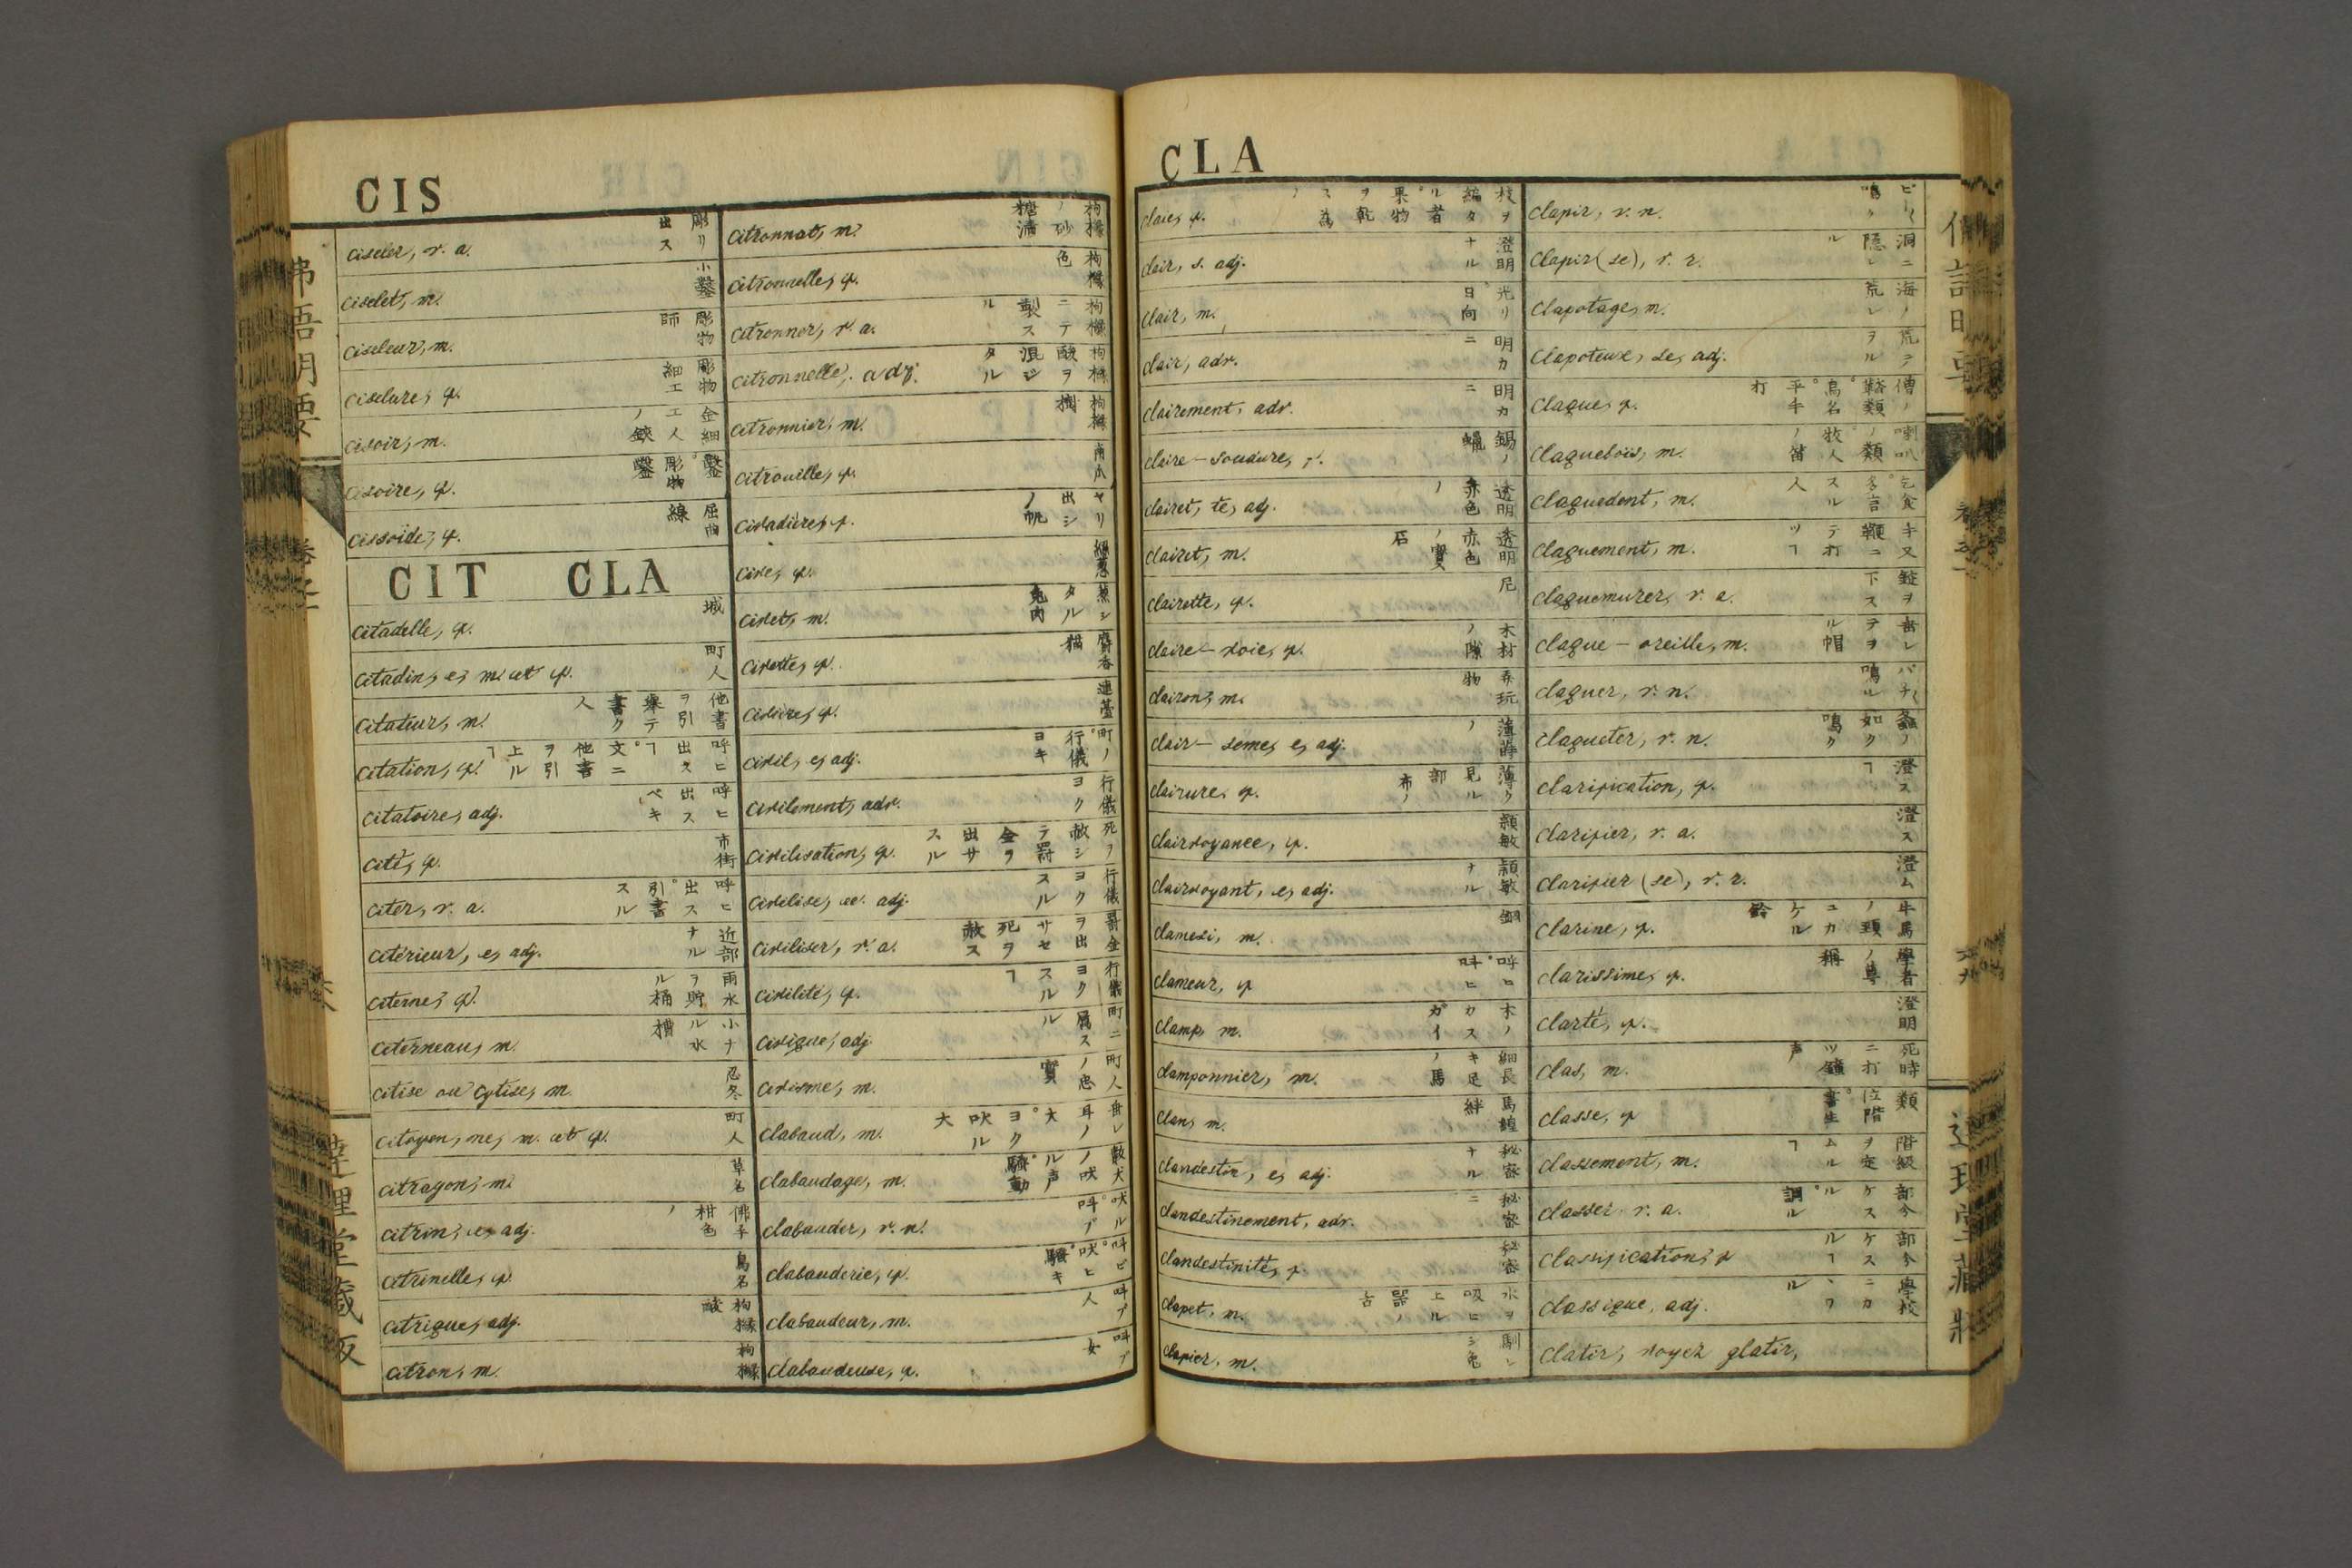 CIS
ciseler, v. a. 彫リ出ス
ciselet, m. 小鑿
ciseleur, m. 彫物師
ciselure, f. 彫物細工
cisoir, m. 金細工人ノ鋏
cisoire, f. 鑿。彫物鑿
cissoïde, f. 屈曲線
CIT CLA
citadelle, f. 城
citadin, e, m. et f. 町人
citateur, m. 他書ヲ引挙テ書ク人
citation, f. 呼ヒ出スヿ。文ニ他書ヲ引上ルヿ
citatoire, adj. 呼ヒ出スベキ
cité, f. 市街
citer, v. a. 呼ヒ出ス。引書スル
citérieur, e, adj. 近部ナル
citerne, f. 雨水ヲ貯ル桶
citerneau, m. 小ナル水槽
citise ou cytise, m. 忍冬
citoyen, ne, m. et f. 町人
citragon, m. 草名
citrin, e, adj. 佛手柑色ノ
citrinelle, f. 鳥名
citrique, adj. 枸櫞酸
citron, m. 枸櫞
citronnat, m. 枸櫞ノ砂糖漬
citronnelle, f. 枸櫞色
citronner, v. a. 枸櫞ニテ製スル
citronnelle, adj. 枸櫞酸ヲ混ジタル
citronnier, m. 枸櫞樹
citrouille, f. 南瓜
civadière, f. ヤリ出シノ帆
cive, f. 細葱
civet, m. 蒸シタル兎肉
civette, f. 麝香猫
civière, f. 連臺
civil, e, adj. 町ノ。行儀ヨキ
civilement, adv. 行儀ヨク
civilisation, f. 死ヲ赦シテ罰金ヲ出サスル
civilisé, ée, adj. 行儀ヨクスル
civiliser, v. a. 罰金ヲ出サセ死ヲ赦ス
civilité, f. 行儀ヨクスルヿ
civique, adj. 町ニ属スル
civisme, m. 町人ノ忠實
clabaud, m. 垂レ耳ノ犬。ヨク吠ル犬
clabaudage, m. 數犬ノ吠ル声。騒動
clabauder, v. n. 吠ル。叫ブ
clabauderie, f. 叫ビ。吠ヒ。騒キ
clabaudeur, m. 叫ブ人
clabaudeuse, f. 叫ブ女
CLA
claie, f. 枝ヲ編タル者。果物ヲ乾ス為ノ
clair, s. adj. 澄明ナル
clair, m. 光リ。日向
clair, adv. 明カニ
clairement, adv. 明カニ
claire-soudure, f. 錫ノ蠟
clairet, te, adj. 透明赤色ノ
clairet, m. 透明赤色ノ寶石
clairette, f. 尼
claire-voie, f. 木材ノ隙
clairon, m.
clair-semé, e, adj. 薄蒔ノ
clairure, f. 薄ク見ル部 布ノ
clairvoyance, f. 穎敏
clairvoyant, e, adj. 穎敏ナル
clamesi, m. 鋼
clameur, f. 呼ヒ。叫ヒ
clamp, m. 木ノカスガイ
clamponnier, m. 細長キ足ノ馬
clan, m.
clandestin, e, adj. 秘密ナル
clandestinement, adv. 秘密ニ
clandestinité, f. 秘密
clapet, m. 水ヲ吸ヒ上ル器ノ舌
clapier, m. 馴シ兎
clapir, v. n. ビイ〱鳴ク
clapir (se), v. r. 洞ニ隠レル
clapotage, m. 海ノ荒レ
clapoteux, se, adj. 荒テヲル
claque, f. 僧ノ鞜類。鳥名。平手打
claquebois, m. 喇叭ノ類。牧人ノ笛
claquedent, m. 乞食。多言スル人
claquement, m.
claquemurer, v. a. 錠ヲ下ス
claque-oreille, m. 垂レテヲル帽
claquer, v. n. パチ〱鳴ル
claqueter, v. n. 蟲ノ如ク鳴ク
clarification, f. 澄スヿ
clarifier, v. a. 澄ス
clarifier (se), v. r. 澄ム
clarine, f. 牛馬ノ頸ニカケル鈴
clarissime, f. 學者ノ尊稱
clarté, f. 澄明
clas, m. 死時ニ打ツ鐘声
classe, f. 類。位階。書生
classement, m. 階級ヲ定ムルヿ
classer, v. a. 部分ケスル。調ル
classification, f. 部分ケスルヿ
classique, adj.
clatir, voyez glatir,
達理堂蔵版